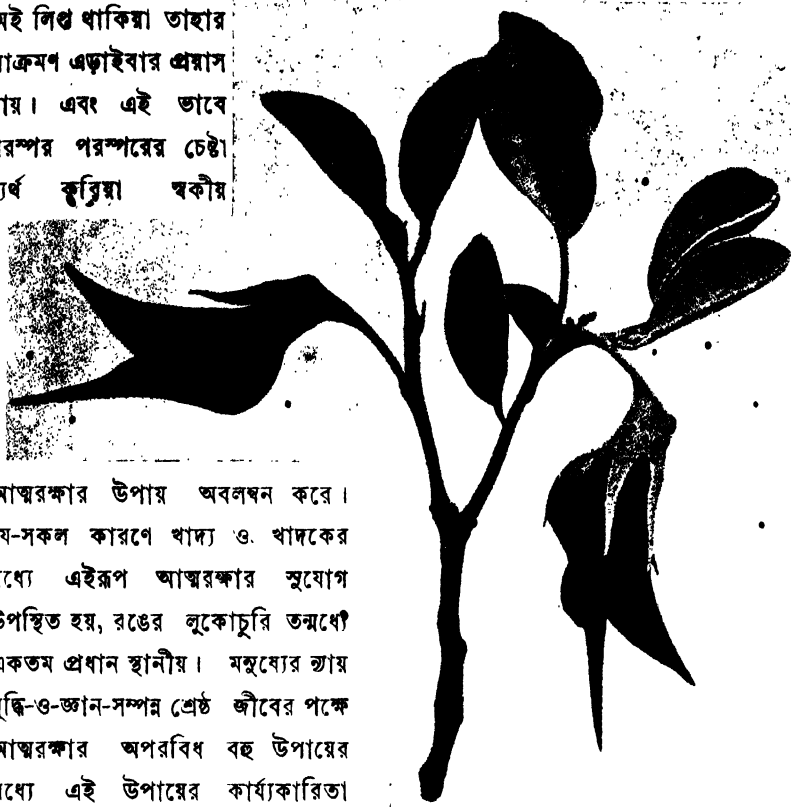 মই লিপ্ত থাকিয়া তাহার
াক্রমণ এড়াইবার প্রয়াস
ায়। এবং এই ভাবে
রস্পর পরস্পরের চেষ্টা
্যর্থ করিয়া স্বকীয়
আত্মরক্ষার উপায় অবলম্বন করে।
য-সকল কারণে খাদ্য ও খাদকের
মধ্যে এইরূপ আত্মরক্ষার সুযোগ
উপস্থিত হয়, রঙের লুকোচুরি তন্মধ্যে
একতম প্রধান স্থানীয়। মনুষ্যের ন্যায়
বুদ্ধি-ও-জ্ঞান-সম্পন্ন শ্রেষ্ঠ জীবের পক্ষে
আত্মরক্ষার অপরবিধ বহু উপায়ের
মধ্যে এই উপায়ের কার্য্যকারিতা